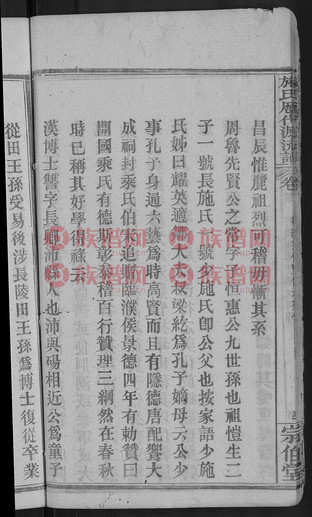 施氏歷代源流譜
卷
崇伯堂
昌辰惟麗祖烈可稽
其系
周魯先賢公之常字子恒惠公九世孫也祖愷生二
子一號長施氏一號少施氏卽公父也按家語少施
氏姊曰耀英適鄹大夫叔梁紇爲孔子嫡母云公少
事孔子身通六藝爲時高賢而且有隱德唐配饗大
成祠封乘氏伯宋追贈臨濮侯景德四年有勅贊曰
開國乘氏有德斯彰參稽百行贊理三綱然在春秋
時已稱其好學得祿云
漢博士讐字長卿沛縣人也沛與碭相近公爲童子
從田王孫受易後涉長陵田王孫爲博士復從卒業
族谱网